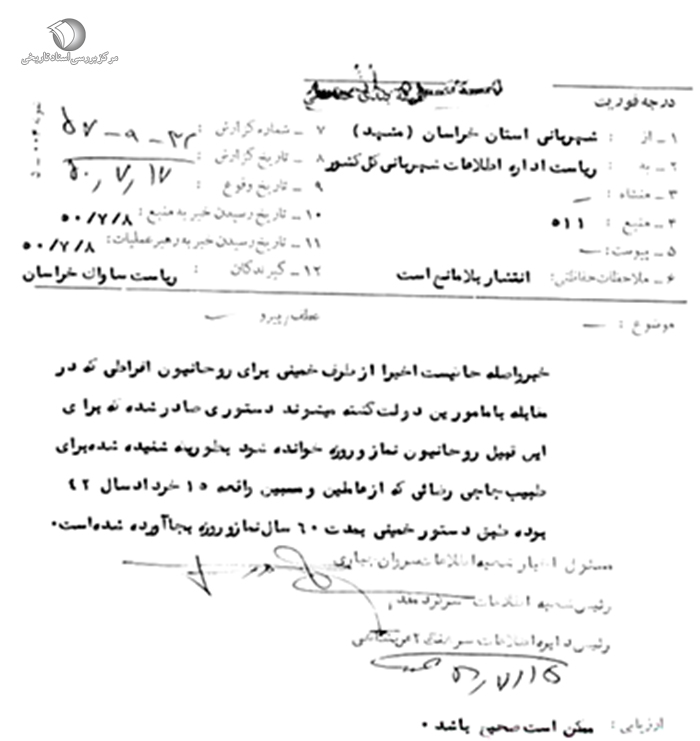 مرکز بررسی اسناد تاریخی
درجه فوریت
۱ ـ از : شهربانی استان خراسان (مشهد)
۲ ـ به : ریاست اداره اطلاعات شهربانی کل کشور
۳ ـ منشاء : ـ
۴ ـ منبع : ۵۱۱
۵ ـ پیوست : ـ
۶ ـ ملاحظات حفاظتی: انتشار بلامانع است
۷ ـ شماره گزارش :
۸ ـ تاریخ گزارش :
۹ ـ تاریخ وقوع :
۱۰ ـ تاریخ رسیدن خبر به منبع : ۵۰/۷/۸
۱۱ ـ تاریخ رسیدن خبر به رهبر عملیات: ۵۰/۷/۸
۱۲ ـ گیرندگان : ریاست ساواک خراسان
موضوع : ـ عطف/پیرو ـ
خبر واصله حاکیست اخیرا از طرف خمینی برای روحانیون افراطی که در
مقابله با مامورین دولت کشته میشوند دستوری صادر شده که برای
این قبیل روحانیون نماز و روزه خوانده شود بطوریکه شنیده شده برای
طیب حاجی رضائی که از عاملین و مسببین واقعه ۱۵ خرداد سال ۴۲
بوده طبق دستور خمینی بمدت ۶۰ سال نماز و روزه بجا آورده شده است.
مسئول اخبار شعبه اطلاعات
رئیس شعبه اطلاعات
رئیس دایره اطلاعات
ارزیابی : ممکن است صحیح باشد .